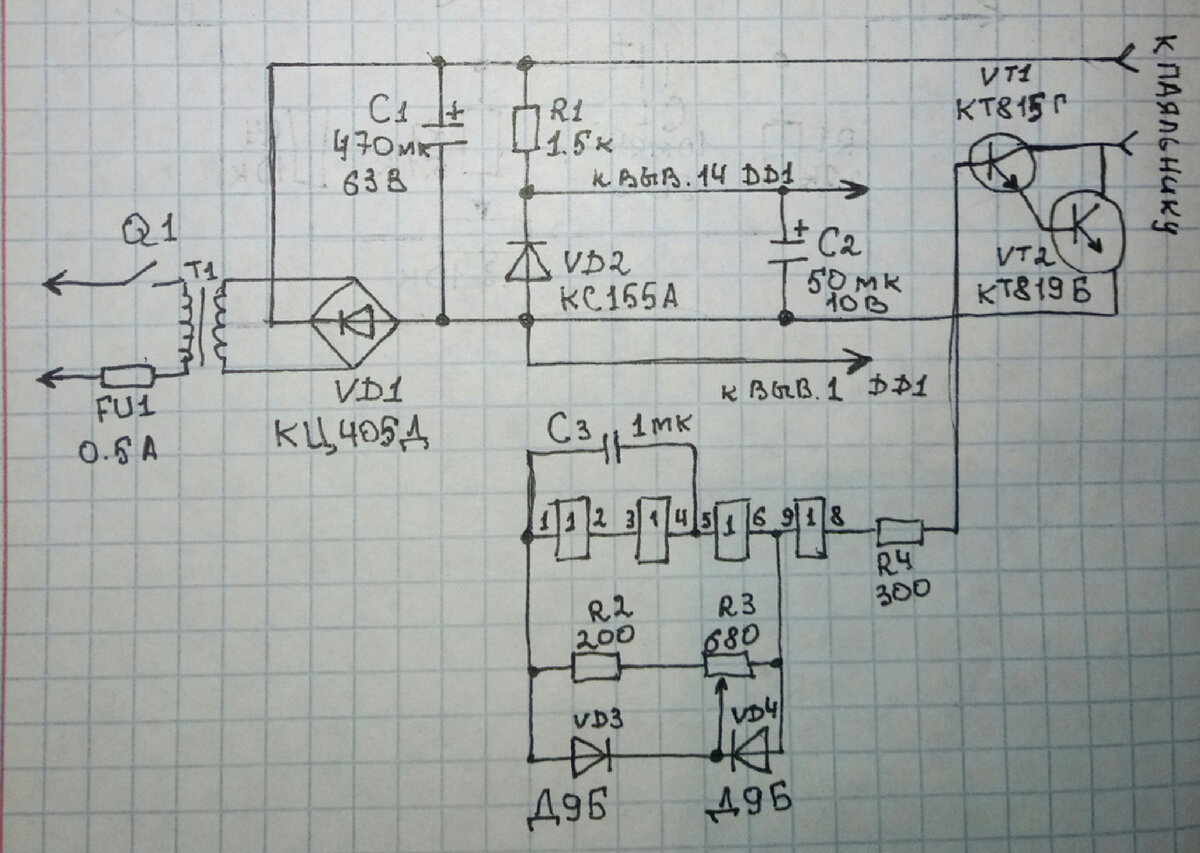 К ПАЯЛЬНИКУ
VT1
КТ815Г
C1
+
470мк
63В
R1
1.5к
к ВЫВ.14 DD1
Q1
T1
VD2
КС155А
+
C2
50мк
10В
VT2
КТ819Б
FU1
0.5А
VD1
КЦ405Д
к ВЫВ.1 DD1
C3
1мк
1 1 2 3 1 4 5 1 6 9 1 8
R4
300
R2
200
R3
680
VD3
VD4
Д9Б
Д9Б